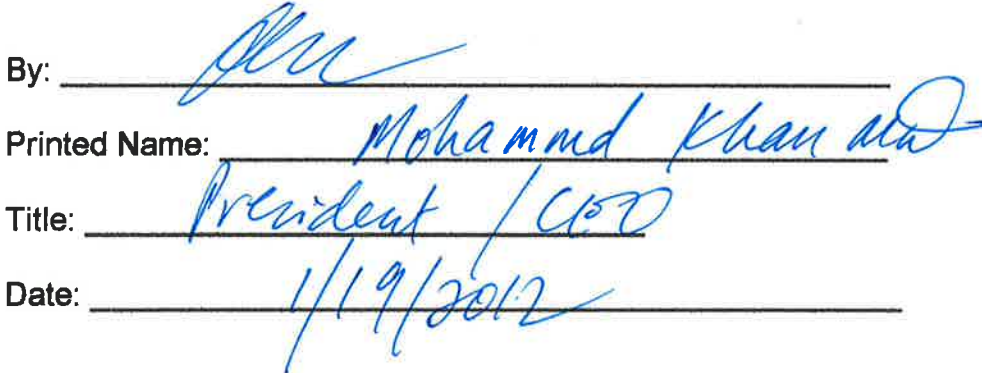 By:
Printed Name: Mohammed Khan MD
Title: President / CEO
Date: 1/19/2012